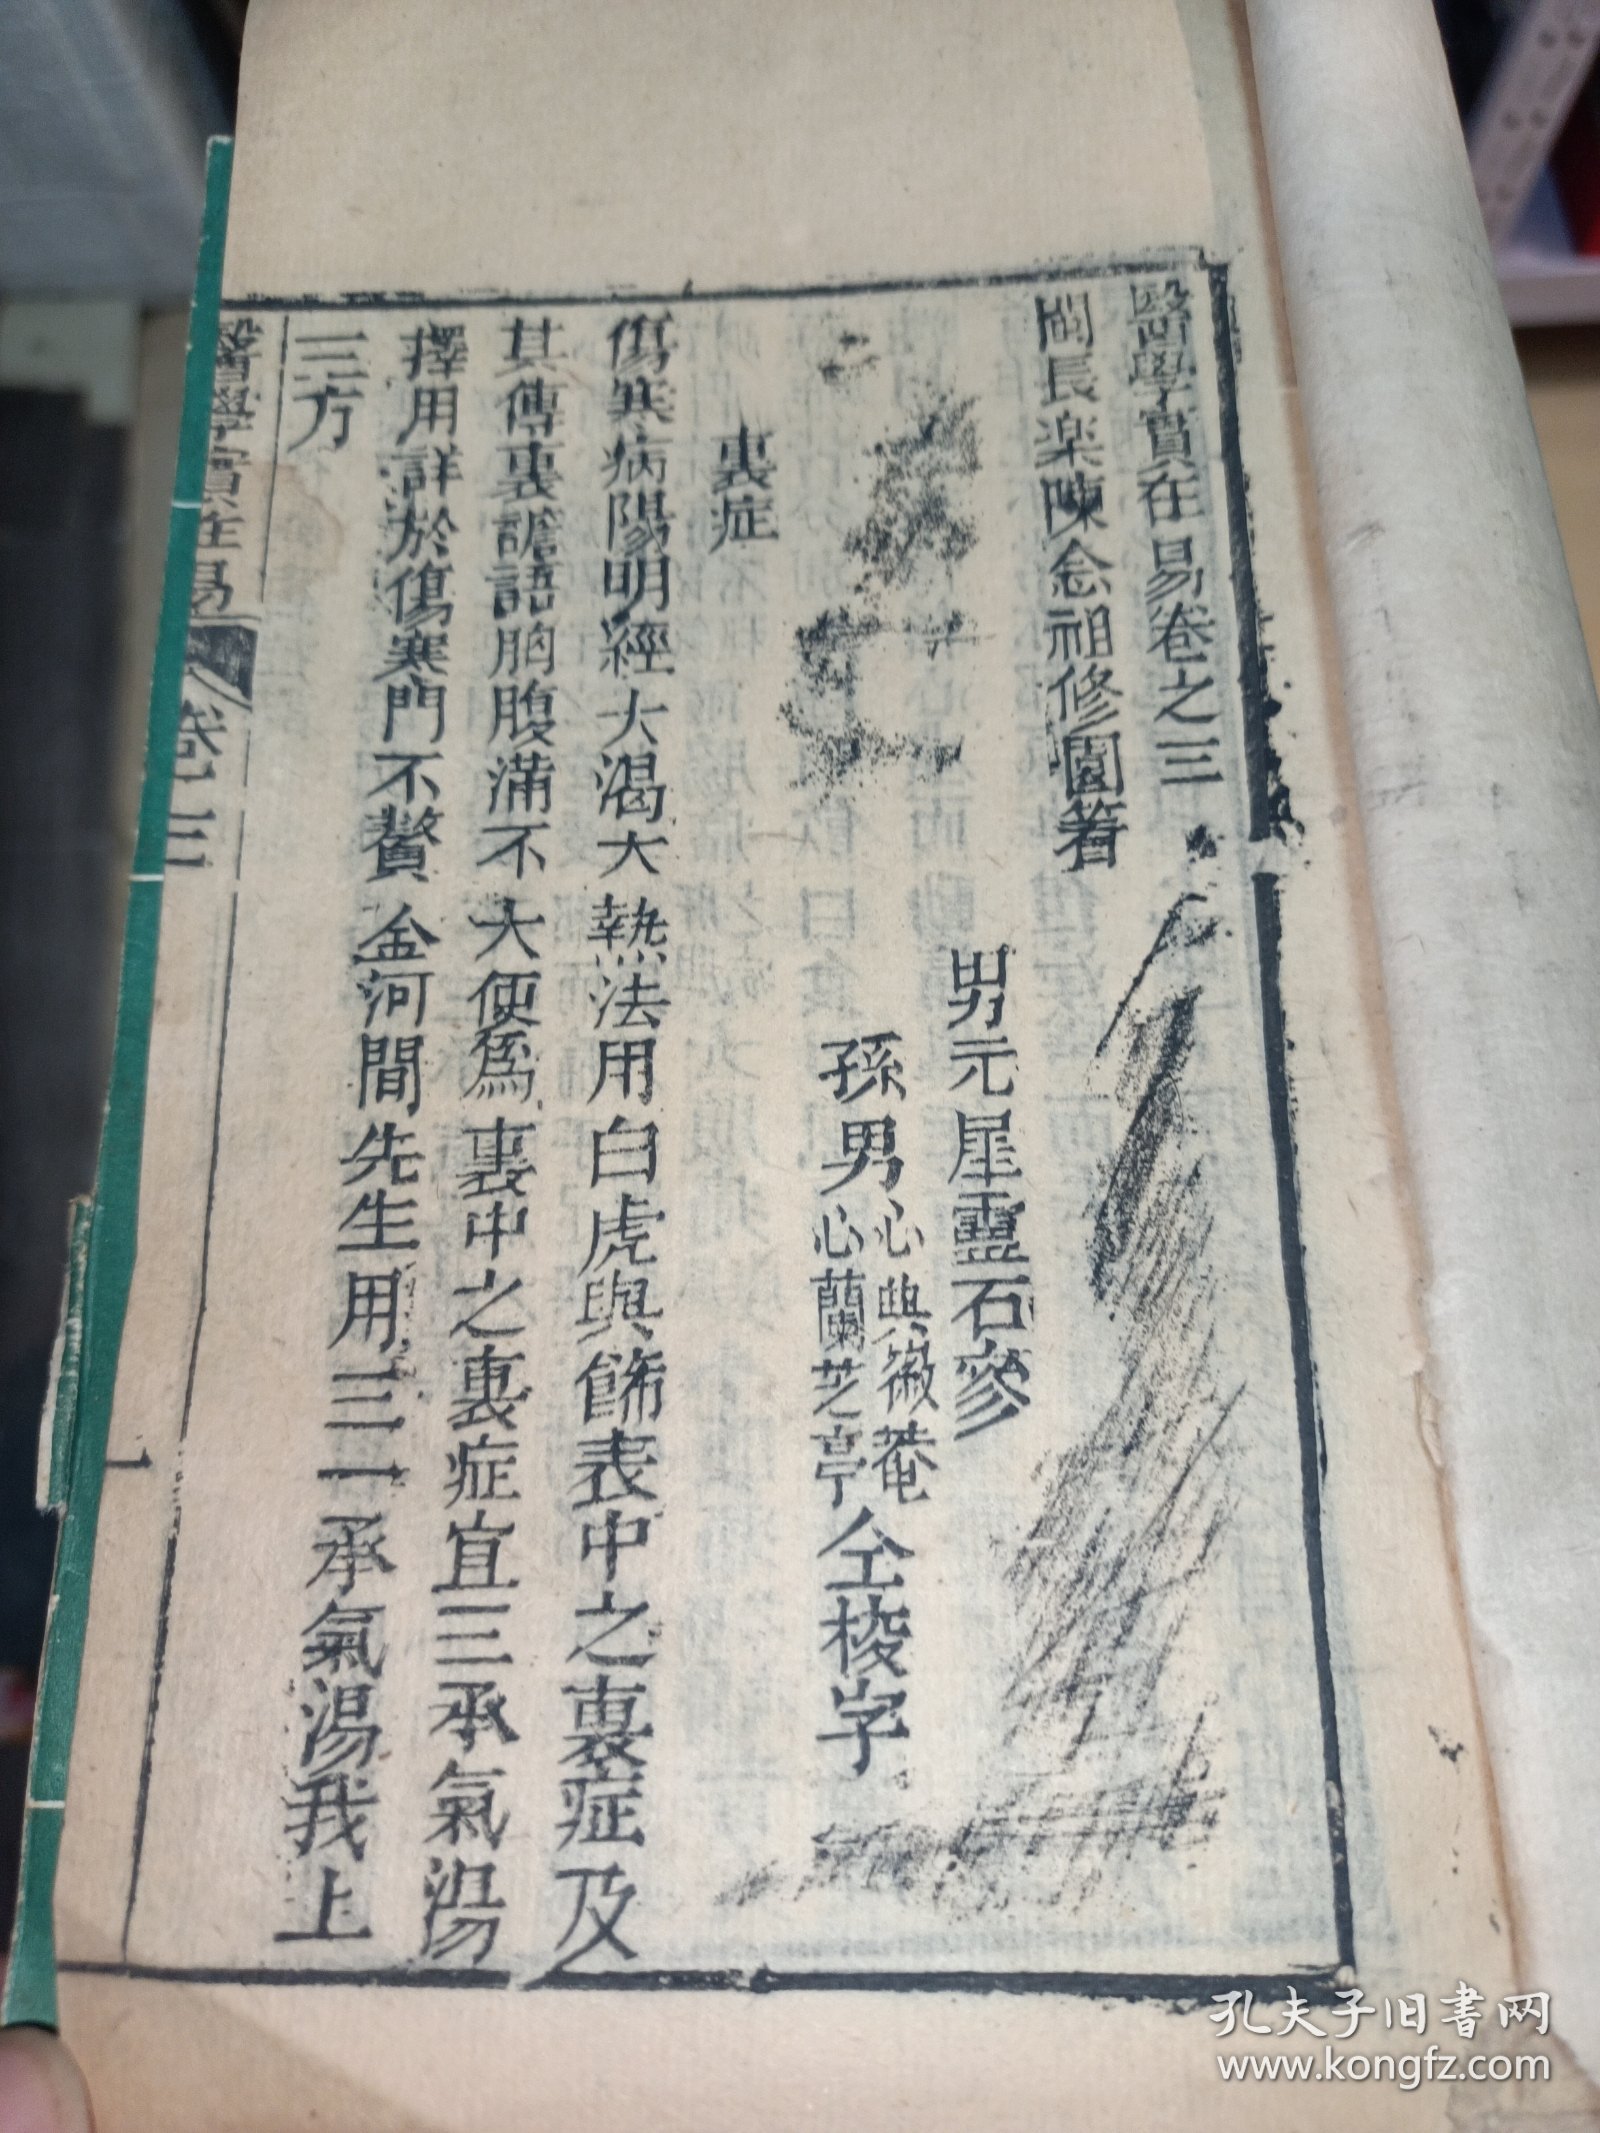 醫學實在易卷之三
閩長楽陳念祖修園着
男元犀靈石參
孫男心典徽菴
心蘭芝亭
仝校字
裏症
傷寒病陽明經大渴大熱法用白虎與篩表中之裏症及
其傳裏譫語胸腹滿不大便為裏中之裏症宜三承氣湯
擇用詳於傷寒門不贅金河間先生用三一承氣湯我上
三方
醫學實在易
卷三
一
孔夫子旧书网
www.kongfz.com